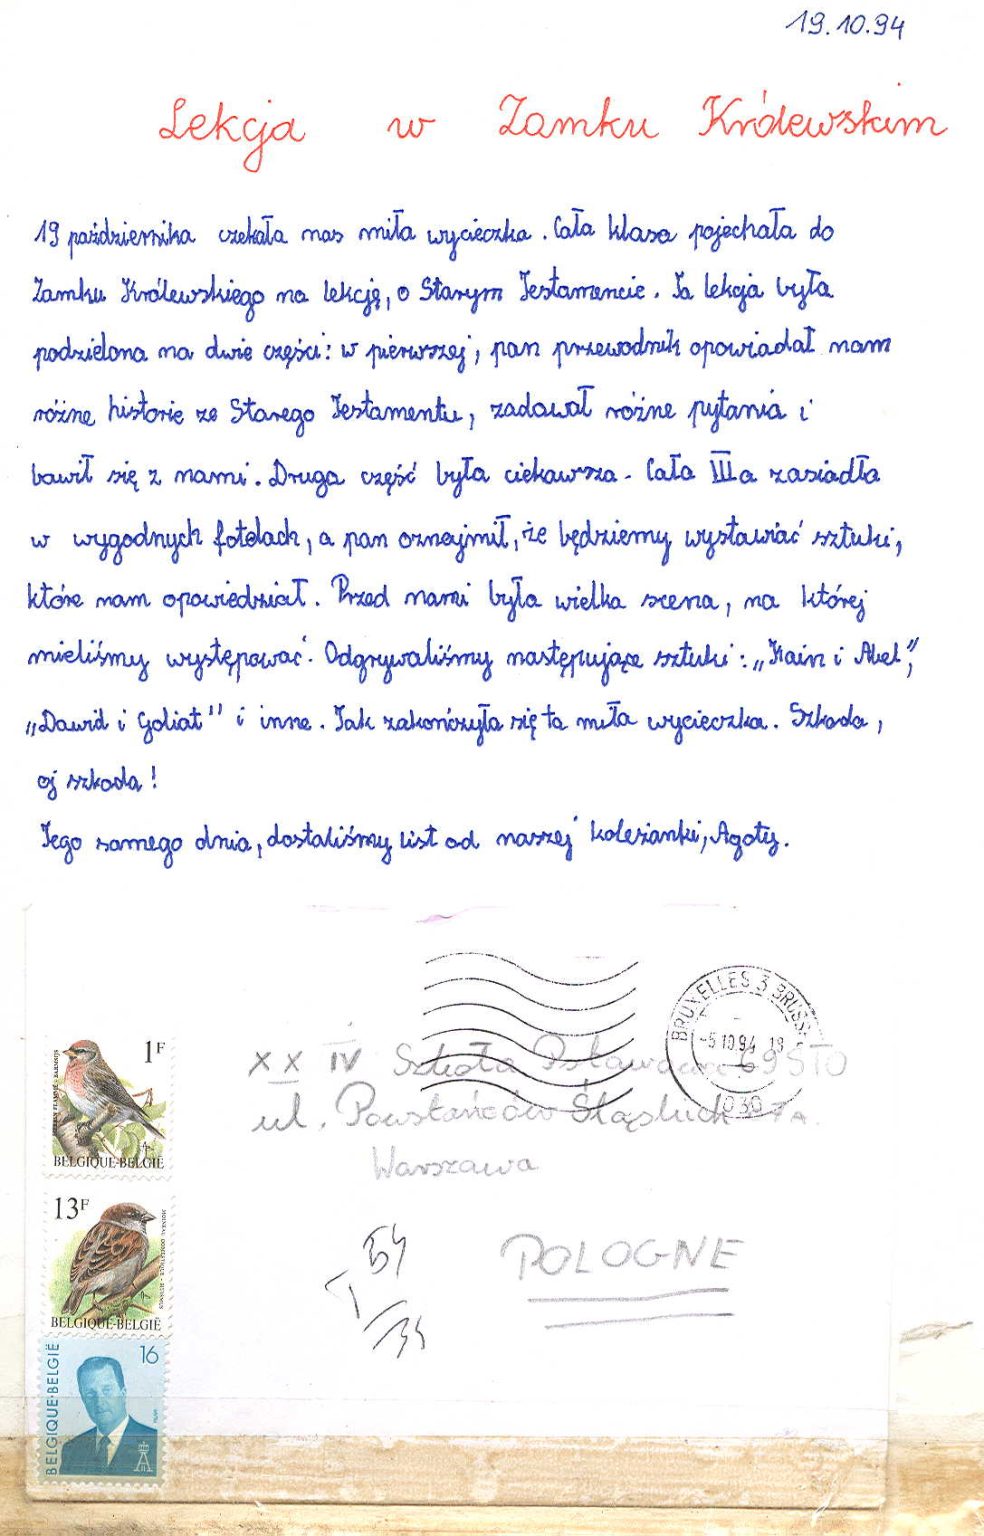 19.10.94
Lekcja w Zamku Królewskim
19 października czekała nas miła wycieczka. Cała klasa pojechała do
Zamku Królewskiego na lekcję, o Starym Testamencie. Ta lekcja była
podzielona na dwie części: w pierwszej, pan przewodnik opowiadał nam
różne historie ze Starego Testamentu, zadawał różne pytania i
bawił się z nami. Druga część była ciekawsza. Cała IIIa zasiadła
w wygodnych fotelach, a pan oznajmił, że będziemy wystawiać sztuki,
które nam opowiedział. Przed nami była wielka scena, na której
mieliśmy występować. Odgrywaliśmy następujące sztuki: „Kain i Abel”,
„Dawid i Goliat” i inne. Tak zakończyła się ta miła wycieczka. Szkoda,
oj szkoda!
Tego samego dnia, dostaliśmy list od naszej koleżanki, Agaty.
BRUXELLES 3 BRUSS
-5 10 94 18
1030
1F
BELGIQUE-BELGIË
XX IV Szkoła 69 STO
ul. Powstańców Śląskich 7A.
Warszawa
POLOGNE
13F
BELGIQUE-BELGIË
16
BELGIQUE-BELGIË